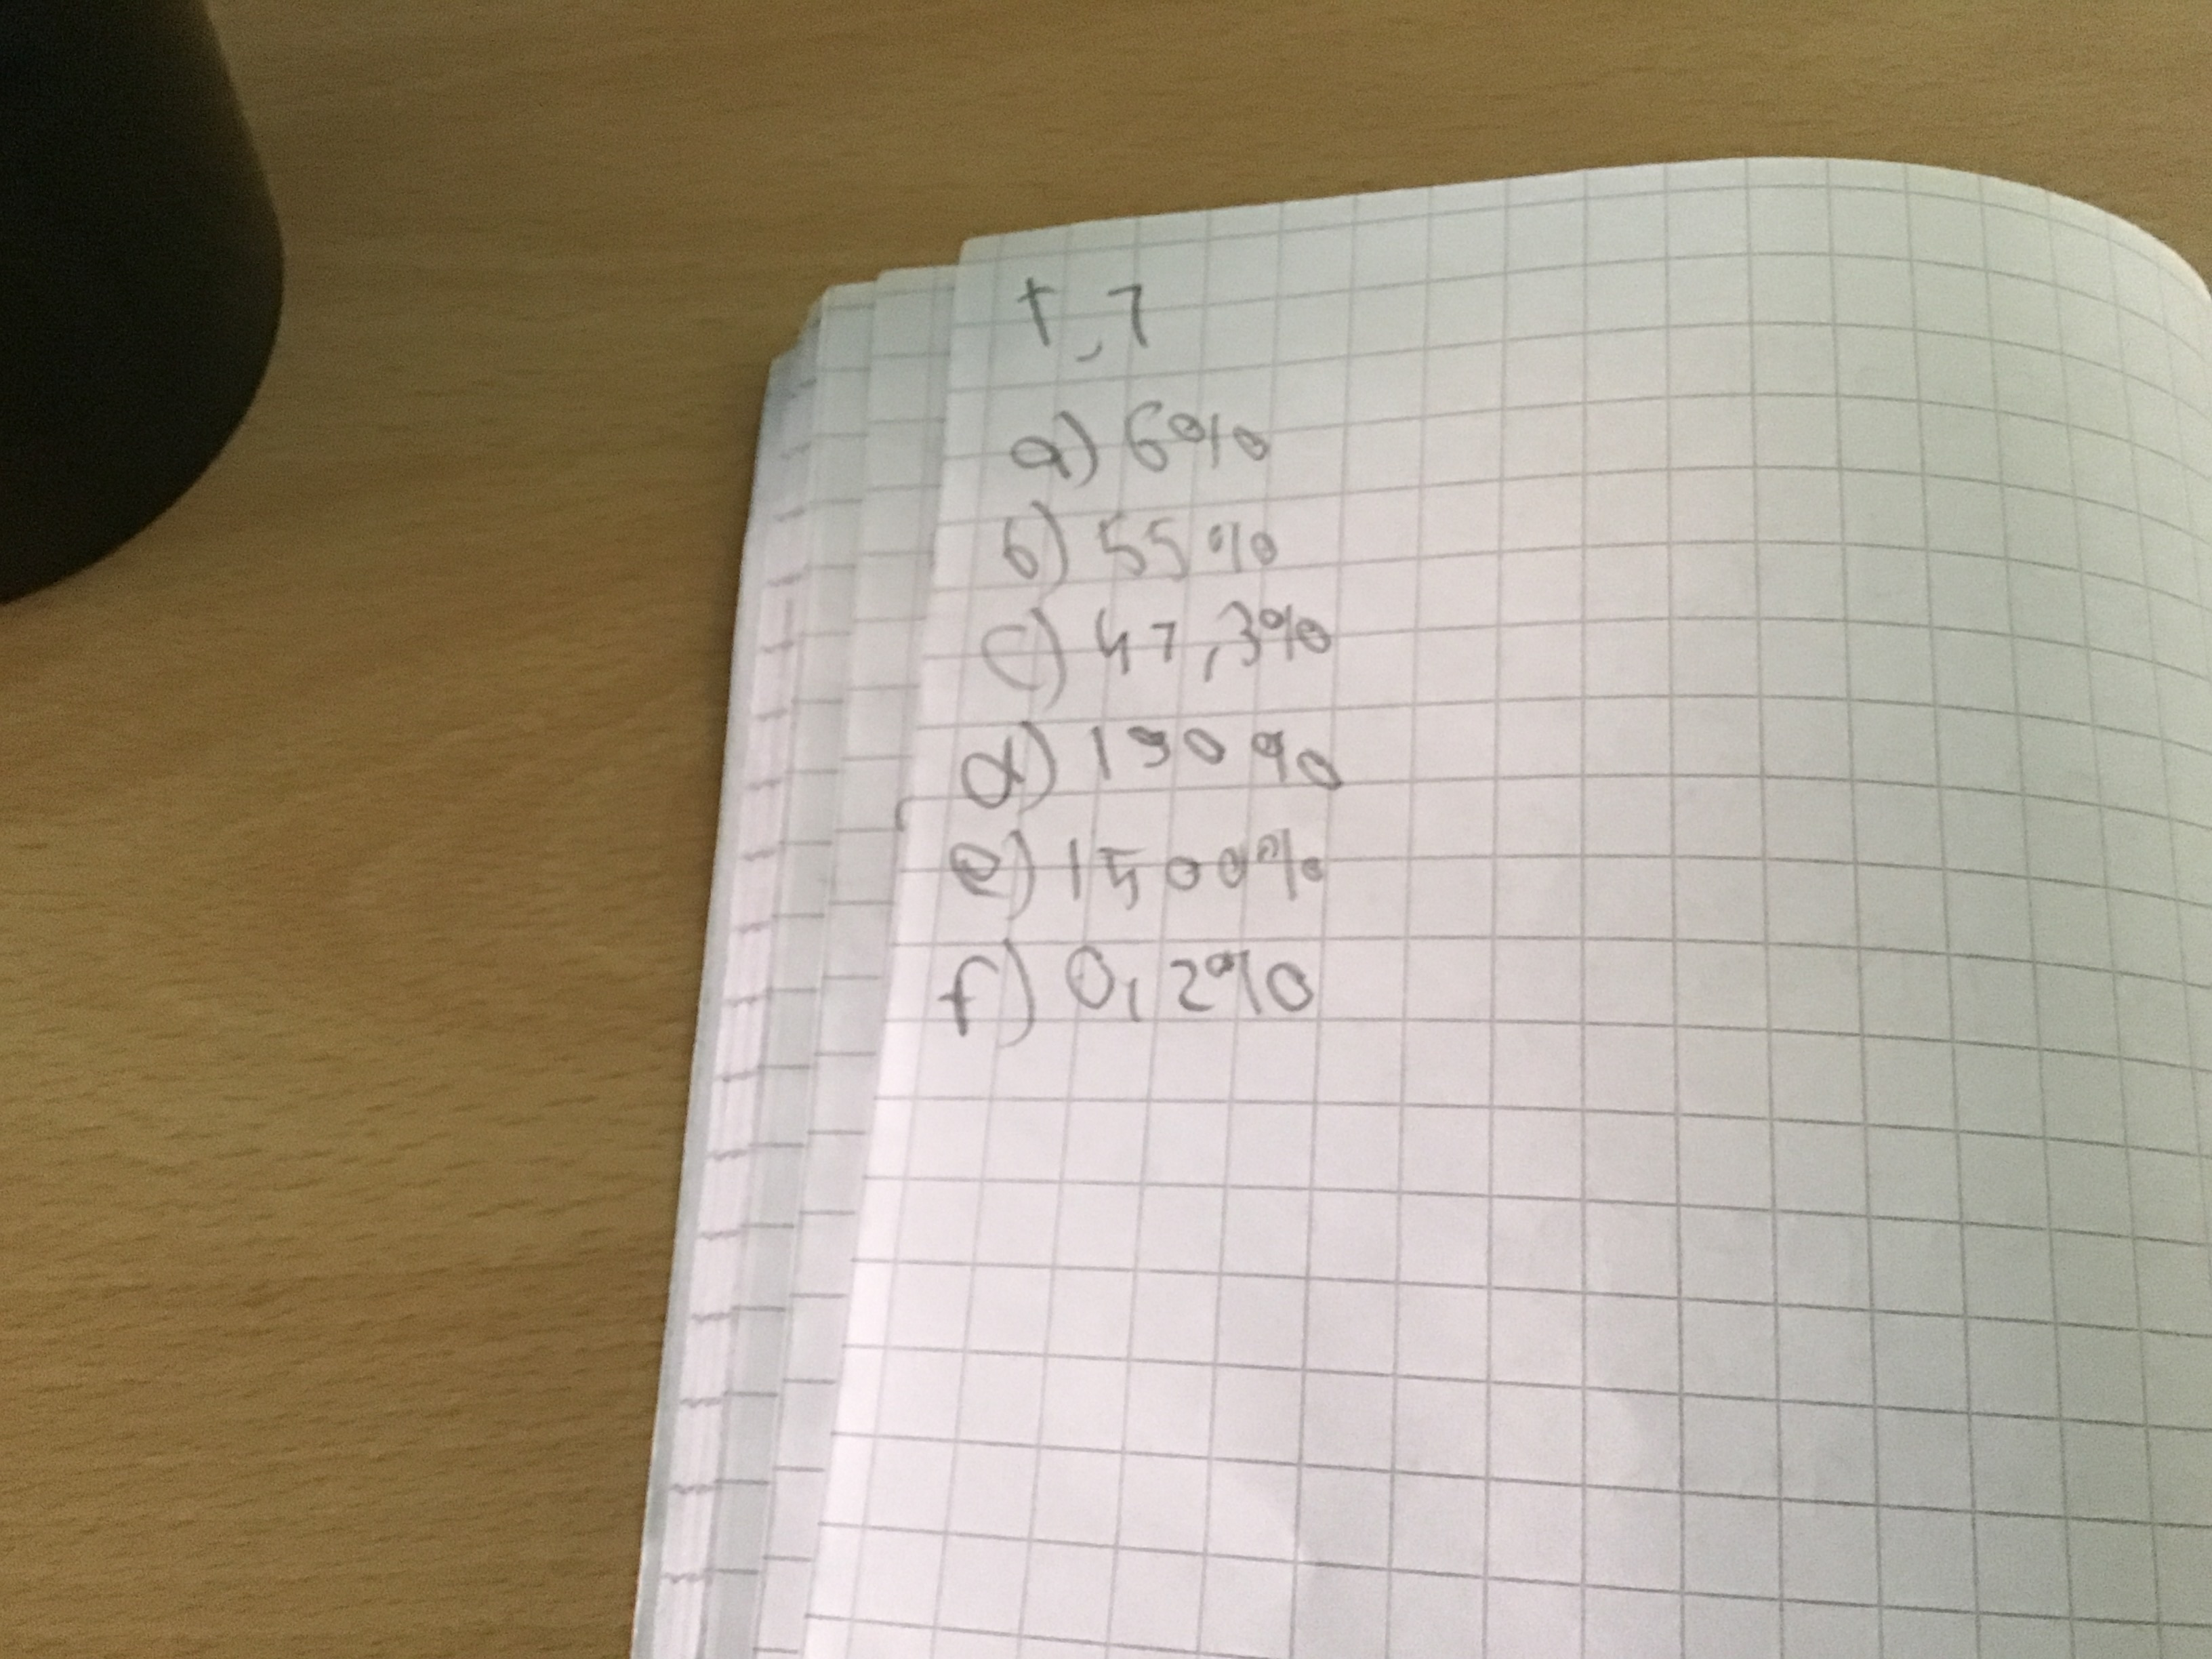 1,7
a) 6%
b) 55%
c) 47,3%
d) 190%
e) 1500%
f) 0,2%